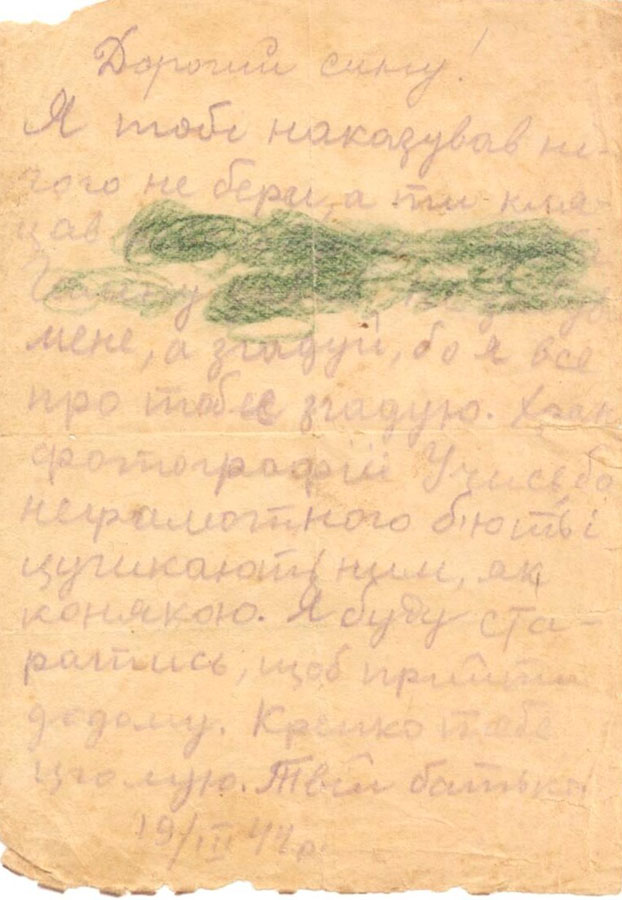 Дорогий сину!
Я тобі наказував ні-
чого не бери, а ти кля-
цав
мене, а згадуй, бо я все
про тебе згадую. Храни
фотографії Учись, бо
неграмотного б'ють і
цугикають ним, як
конякою. Я буду ста-
ратись, щоб прийти
додому. Крепко тебе
цюлую. Твій батько
19/III 44 р.